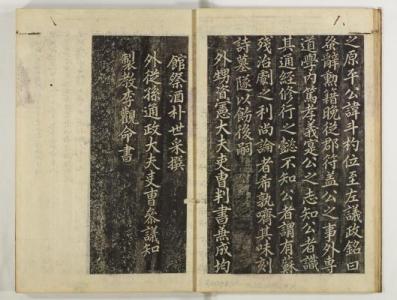 之原平公諱斗杓位至左議政銘曰
後辭勲籍晩從郡符盖公之事外專
道學內篤孝義寔公之志知公者識
其通經修行之懿不知公者謂有蘇
殘治劇之利尚論者希孰嚌其味刻
詩墓隧以飭後嗣
外甥資憲大夫吏曹判書兼成均
館祭酒朴世采撰
外從孫通政大夫吏曹參議知
製教李觀命書